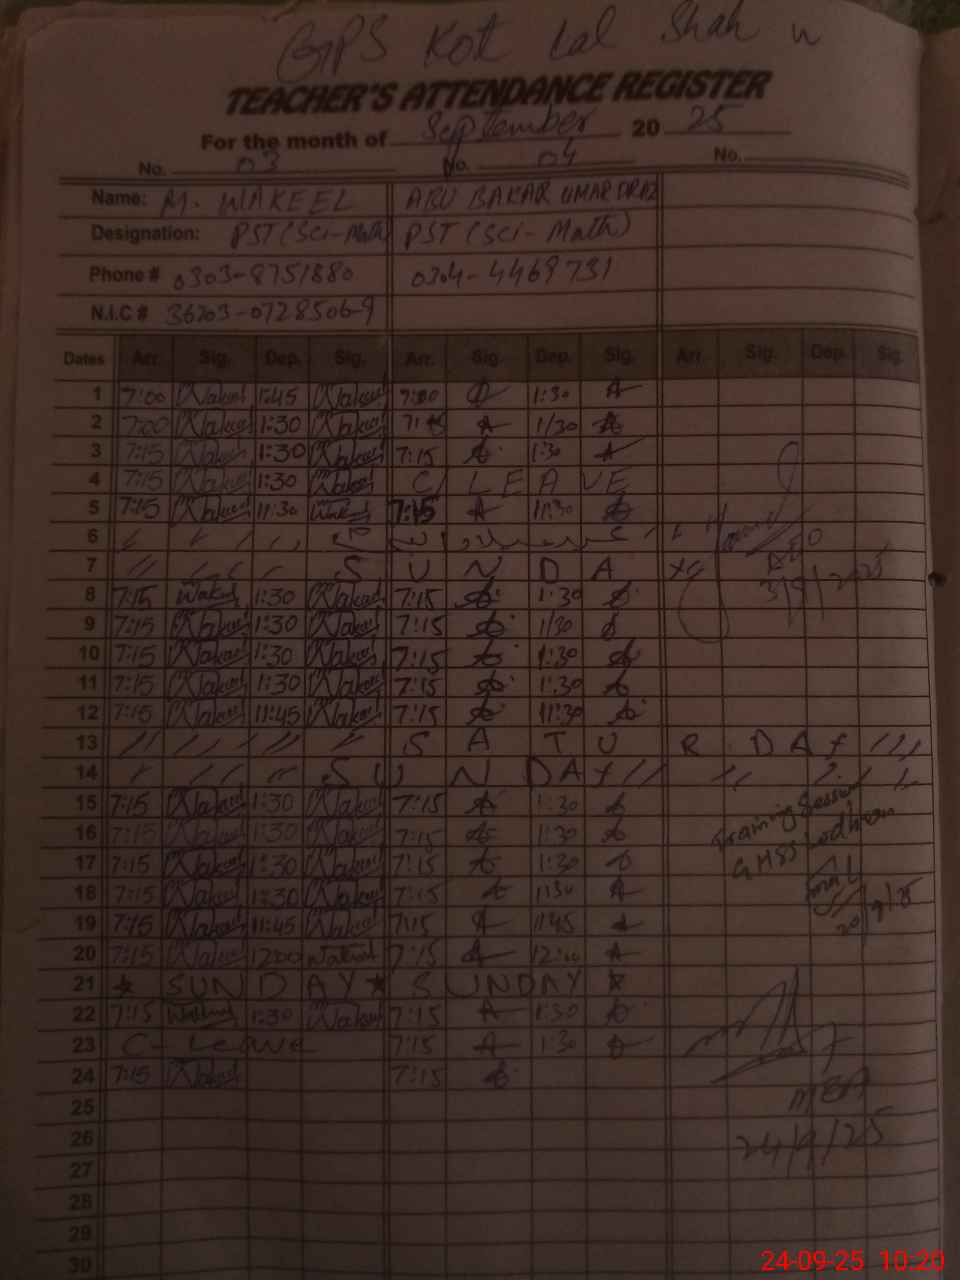 GPS Kot Lal Shah
TEACHER'S ATTENDANCE REGISTER
For the month of September 20 25
No. 03 No. 04 No.
Name: M. WAKEEL ABU BAKAR UMAR DRAZ
Designation: PST (Sci-Math) PST (Sci-Math)
Phone # 0303-8751880 0304-4469731
N.I.C # 36203-0728506-9
Dates Arr. Sig. Dep. Sig. Arr. Sig. Dep. Sig. Arr. Sig. Dep. Sig.
1 7:00 Wakeel 1:45 Wakeel 7:00 A 1:30 A
2 7:00 Wakeel 1:30 Wakeel A 1/30 A
3 7:15 Wakeel 1:30 Wakeel 7:15 A 1:30 A
4 7:15 Wakeel 1:30 Wakeel C/ LEAVE
5 7:15 Wakeel 11:30 Wakeel 7:15 A 11:30 A
6
7 // // // S U N D A Y
8 7:15 Wakeel 1:30 Wakeel 7:15 A 1:30 A
9 7:15 Wakeel 1:30 Wakeel 7:15 A 1/30 A
10 7:15 Wakeel 1:30 Wakeel 7:15 A 1:30 A
11 7:15 Wakeel 1:30 Wakeel 7:15 A 1:30 A
12 7:15 Wakeel 11:45 Wakeel 7:15 A 11:30 A
13 // // // // S A T U R D A Y ///
14 // // // S U N D A Y // //
15 7:15 Wakeel 1:30 Wakeel 7:15 A 1:30 A
16 7:15 Wakeel 1:30 Wakeel 7:15 A 1:30 A
17 7:15 Wakeel 1:30 Wakeel 7:15 A 1:30 A
18 7:15 Wakeel 1:30 Wakeel 7:15 A 1:30 A
19 7:15 Wakeel 11:45 Wakeel 7:15 A 11:45 A
20 7:15 Wakeel 12:00 Wakeel 7:15 A 12:00 A
21 * SUNDAY * SUNDAY *
22 7:15 Wakeel 1:30 Wakeel 7:15 A 1:30 A
23 C- Leave 7:15 A 1:30 A
24 7:15 Wakeel 7:15 A
25
26
27
28
29
30
AEO
3/9/2025
Training Session
GHSS Lodhran
20/9/25
MEA
24/9/25
24-09-25 10:20